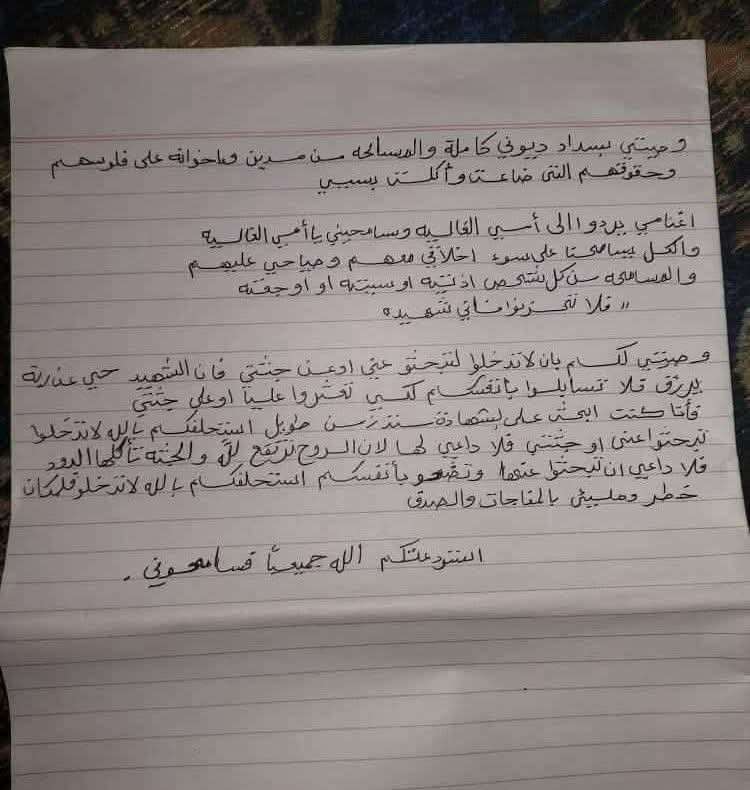 وصيتي بسداد ديوني كاملة والمسالحه من مدين وماخوانه على فلوسهم
وحقوقهم التى ضاعت وأكلت بسببي
اغنامي يردوا الى أمي الغاليه وسامحيني يا أمي الغاليه
والكل يسامحنا على سوء اخلاقي معهم وصياحي عليهم
والمسامحه من كل شخص اذيته او سبيته او اوجعته
"فلا تحزنوا فاني شهيد"
وصيتي لكم بان لاتدخلوا لتبحثو عني او عن جثتي فان الشهيد حي عند ربة
يرزق فلا تسابلوا بانفسكم لكي تعثروا عليا او على جثتي
فأنا كنت ابحث على لشهادة منذ زمن طويل استحلفكم بالله لاتدخلوا
تبحثوا عنى او جثتي فلا داعي لها لان الروح ترتفع لله والجثه تأكلها الدود
فلا داعي ان تبحثوا عنها وتضحو بأنفسكم استحلفكم بالله لاتدخلو فلمكان
خطر ومليئ بالمفاجات والصدق
استودعتكم الله جميعياً فسامحوني .